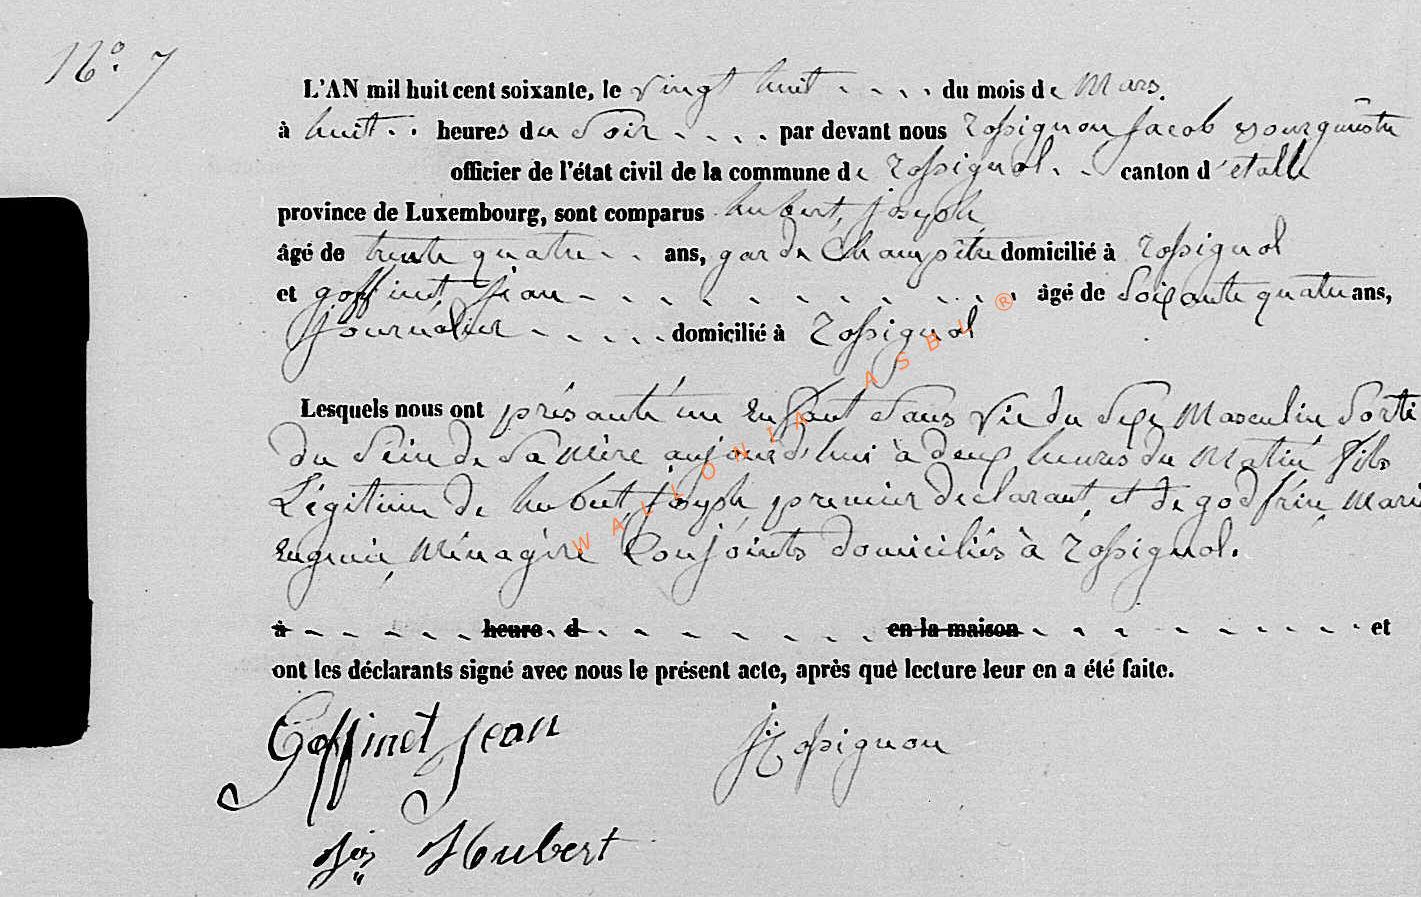 No. 7
L'AN mil huit cent soixante, le vingt huit - - - - du mois de Mars.
à huit - - heures du Soir - - - - par devant nous Rossignon Jacob Bourgmestre
officier de l'état civil de la commune de Rossignol - - canton d'etalle
province de Luxembourg, sont comparus hubert, joseph
âgé de trente quatre - - ans, garde Champêtre domicilié à Rossignol
et goffinet, Jean - - - - - - - - - - - - âgé de Soixante quatre ans,
journalier - - - - - domicilié à Rossignol
Lesquels nous ont présanté un Enfant Sans Vie du Sexe Masculin Sorti
du Sein de Sa Mère aujourd'hui à deux heures du Matin fils
Légitime de hubert, Joseph premier déclarant, et de godfrin Marie
Eugenie, Ménagère Conjoints domiciliés à Rossignol.
à - - - - - heure d - - - - - - - en la maison - - - - - - - - et
ont les déclarants signé avec nous le présent acte, après què lecture leur en a été faite.
Goffinet Jean
J. Rossignon
Jos Hubert
WALLONIA ASBL ®